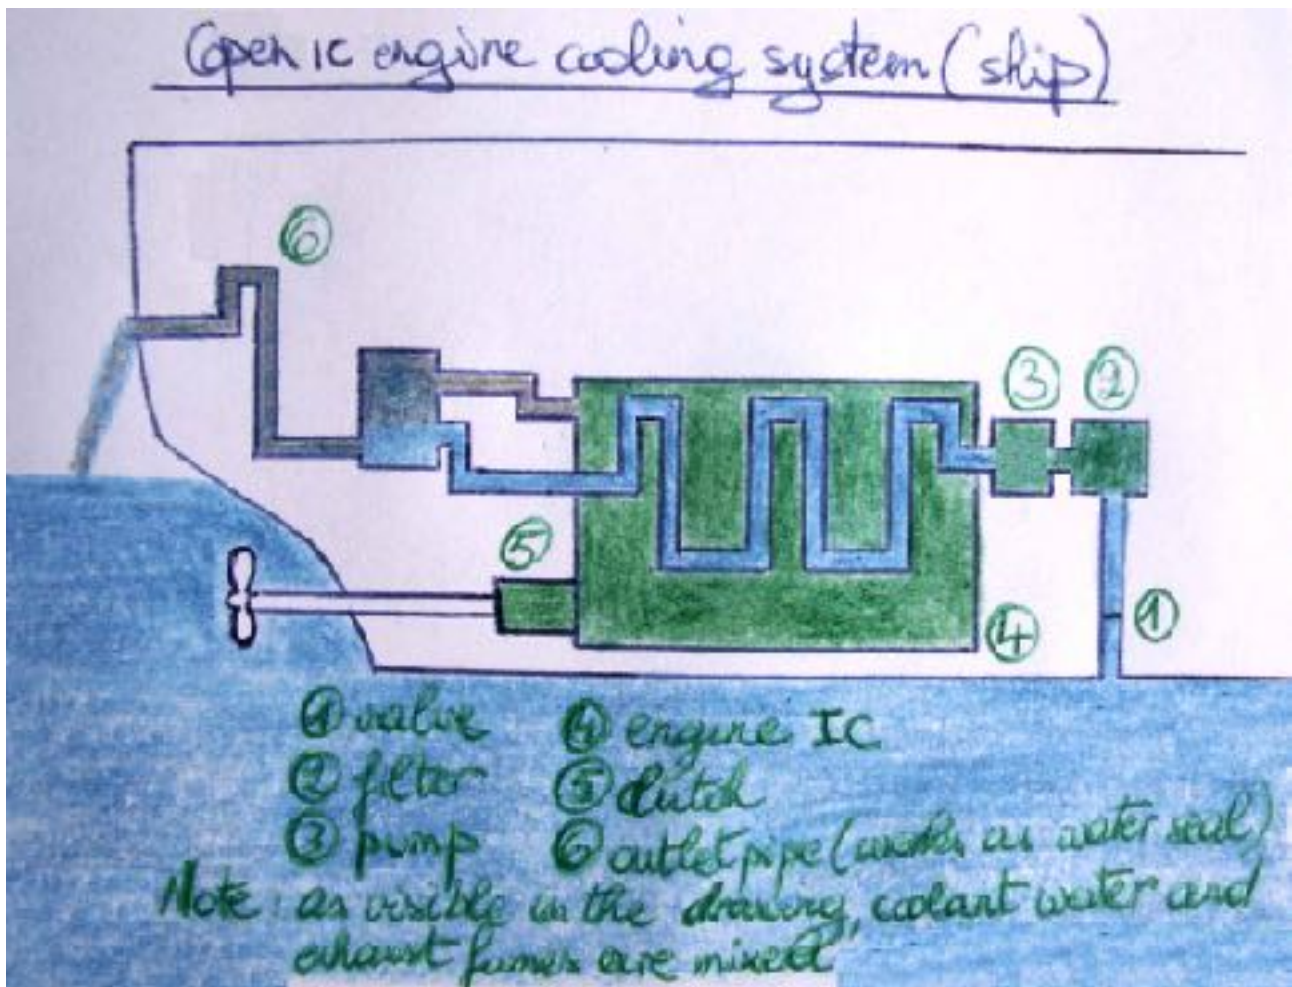 Open IC engine cooling system (ship)
⑥
③ ②
⑤
①
④
① valve ④ engine IC
② filter ⑤ clutch
③ pump ⑥ outlet pipe (works as water seal)
Note: as visible in the drawing, coolant water and
exhaust fumes are mixed